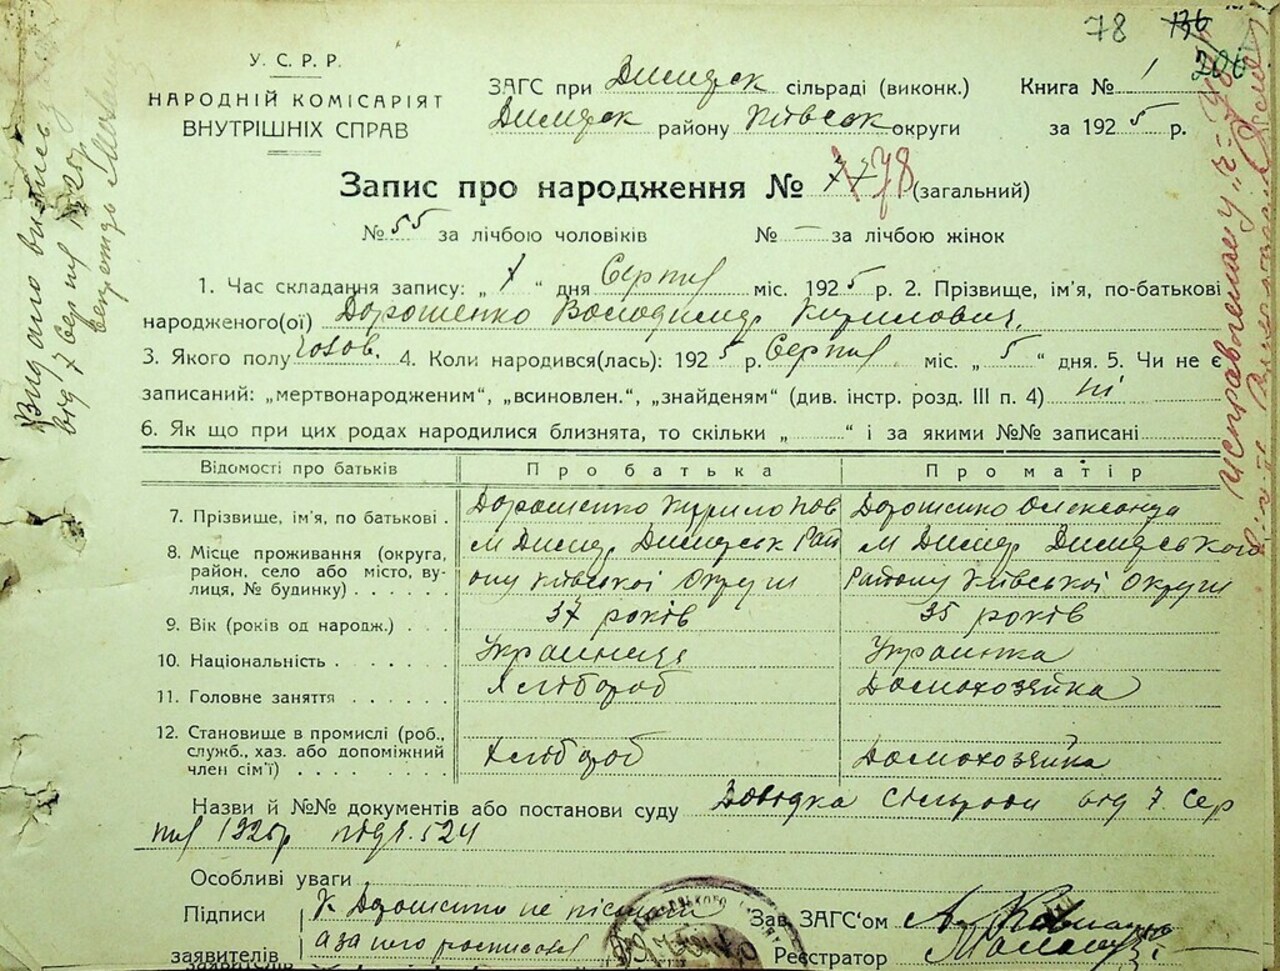 78 136
206
У. С. Р. Р.
НАРОДНІЙ КОМІСАРІЯТ
ВНУТРІШНІХ СПРАВ
ЗАГС при Димерск сільраді (виконк.)
Димерск району Київськ округи
Книга № 1
за 1925 р.
Запис про народження № 77 78 (загальний)
№ 55 за лічбою чоловіків № — за лічбою жінок
1. Час складання запису: „ 7 “ дня Серпня міс. 1925 р. 2. Прізвище, ім'я, по-батькові
народженого(ої) Дорошенко Володимир Кирилович.
3. Якого полу чолов. 4. Коли народився(лась): 1925 р. Серпня міс. „ 5 “ дня. 5. Чи не є
записаний: „мертвонародженим“, „всиновлен.“, „знайденям“ (див. інстр. розд. III п. 4) ні
6. Як що при цих родах народилися близнята, то скільки „ “ і за якими №№ записані
Відомості про батьків Про батька Про матір
7. Прізвище, ім'я, по батькові . Дорошенко Кирило Дорошенко Олександра
8. Місце проживання (округа, район, село або місто, вулиця, № будинку) м Димер Димерськ Рай м Димер Димерського
ону Київської Округи Району Київської Округи
9. Вік (років од народж.) . . . 37 років 35 років
10. Національність . . . . . . Украинець Украинка
11. Головне заняття . . . . . Хлібороб Домохозяйка
12. Становище в промислі (роб., служб., хаз. або допоміжний член сім'ї) . . . . . . Хлібороб Домохозяйка
Назви й №№ документів або постанови суду Довідка Сільради від 7 Сер
пня 1925р 524
Особливі уваги
Підписи К Дорошенко не
заявителів а за него росписался
Зав. ЗАГС'ом
Реєстратор
Видано витяг
від 7 Серпня 1925р.